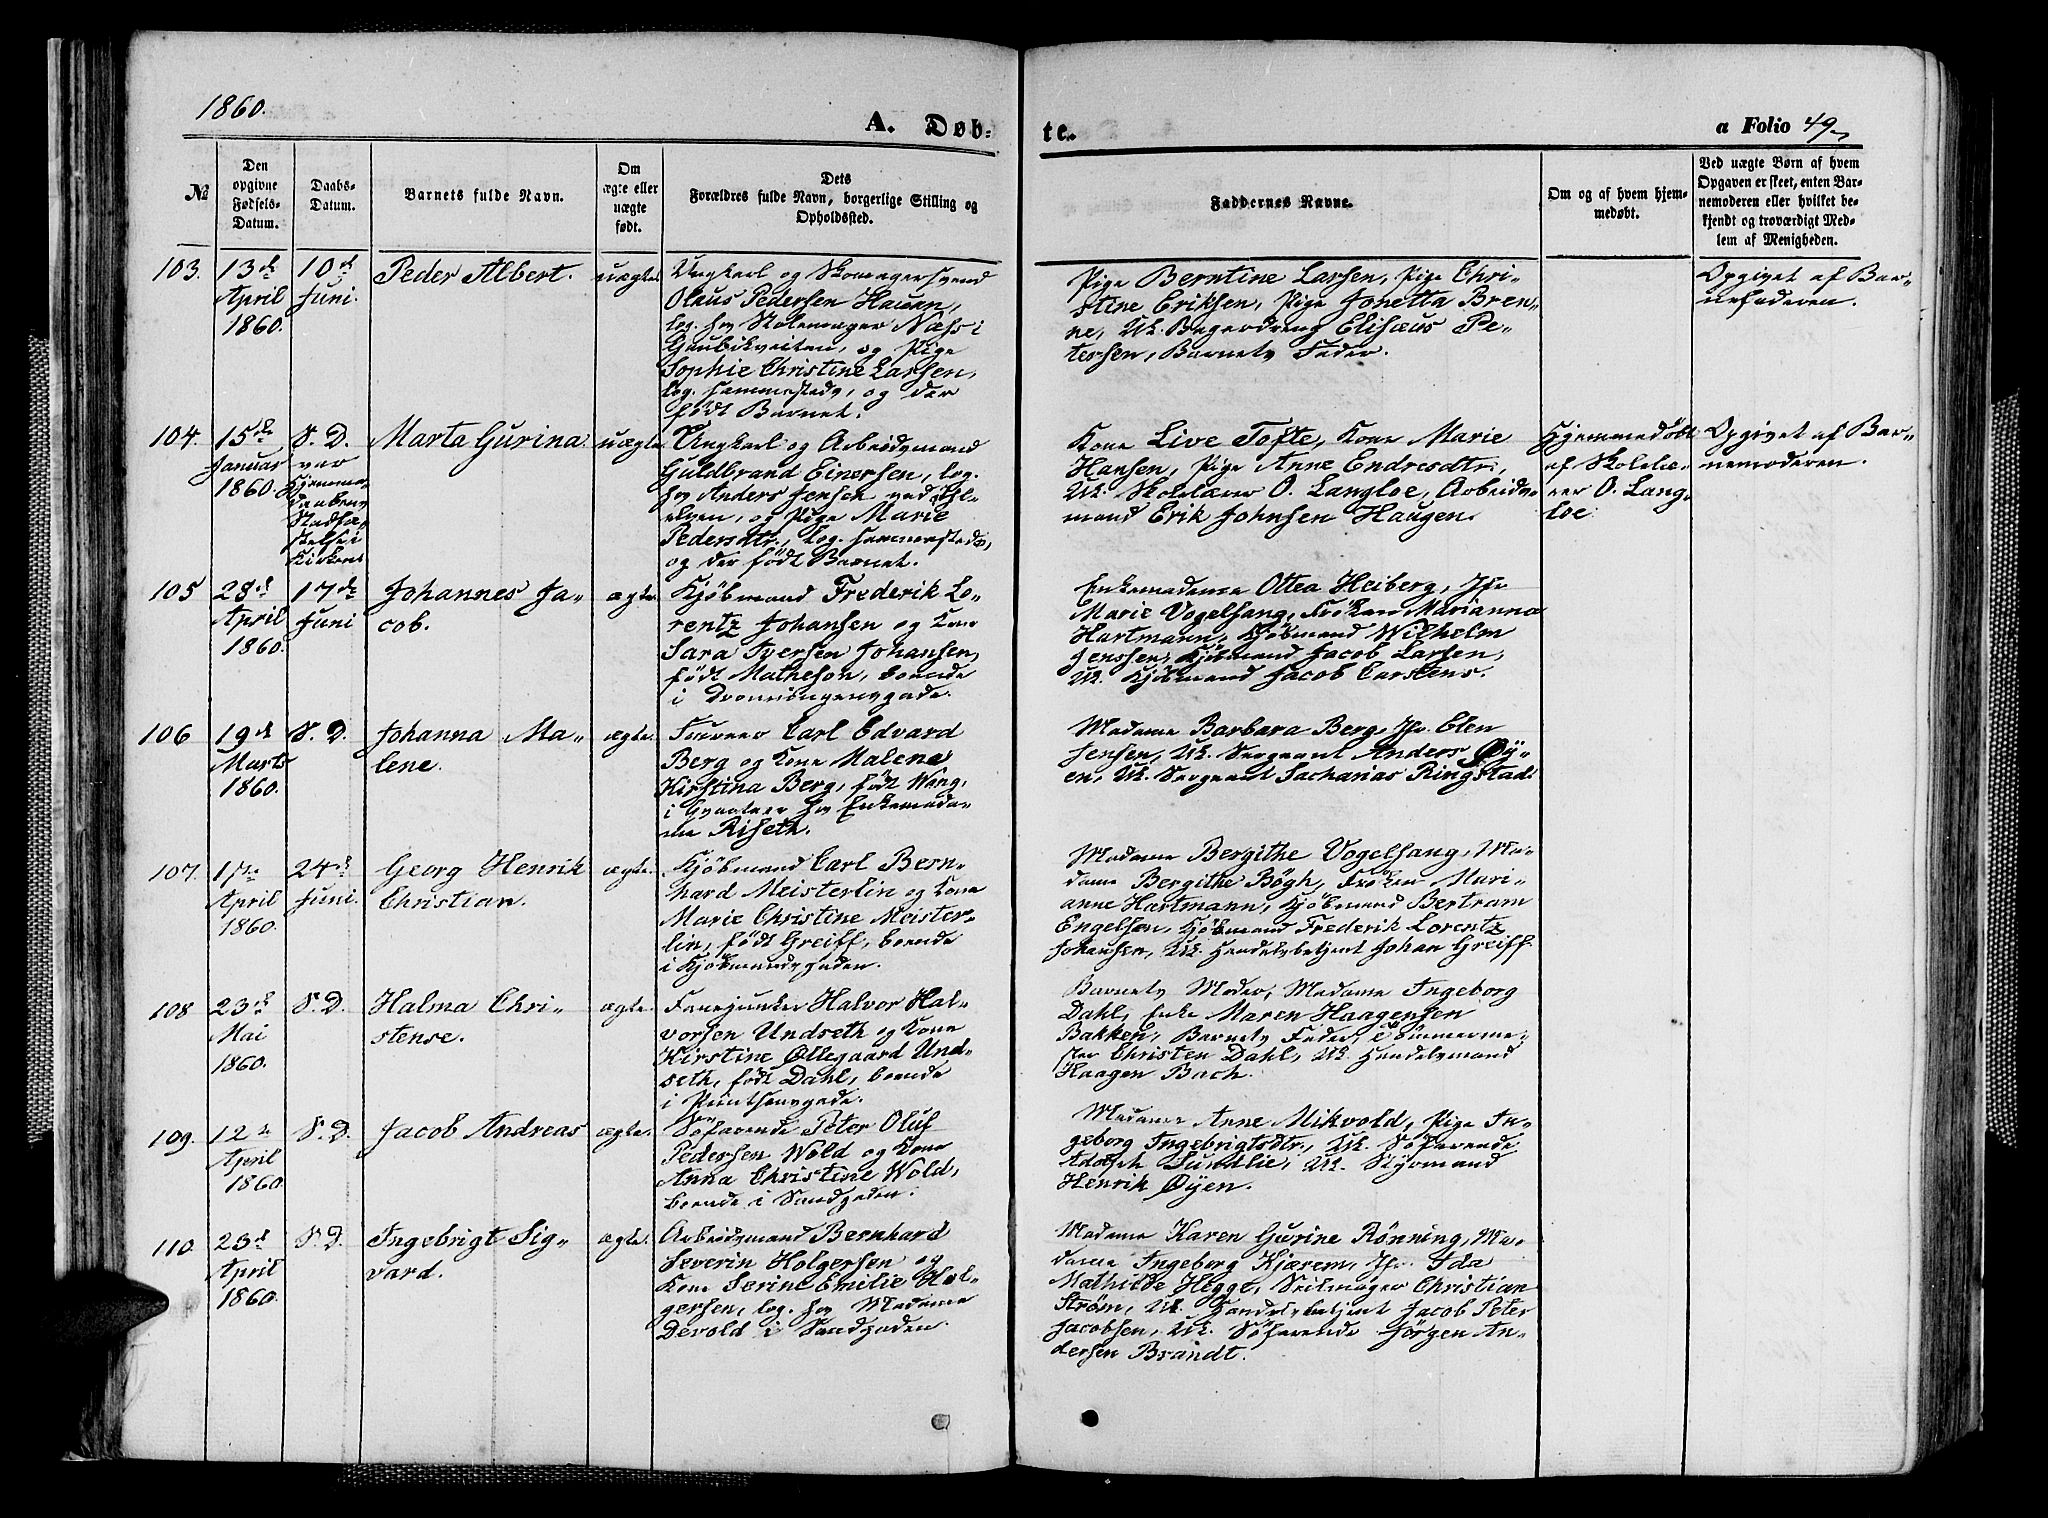 1860.
A. Døb-
te.
a Folio 49
№
Den opgivne Fødsels-Datum.
Daabs-Datum.
Barnets fulde Navn.
Om ægte eller uægte født.
Dets Forældres fulde Navn, borgerlige Stilling og Opholdssted.
Faddernes Navne.
Om og af hvem hjem-medøbt.
Ved uægte Børn af hvem Opgaven er skeet, enten Bar-nemoderen eller hvilket be-kjendt og troværdigt Med-lem af Menigheden.
103.
13de April 1860.
10de Juni.
Peder Albert.
uægte
Ungkarl og Skomagersvend
Olaus Pedersen Hauan,
log. hos Stolemager Næss i
Gaubikveiten, og Pige
Sophie Christine Larsen,
log. sammesteds, og der
født Barnet.
Pige Berntine Larsen, Pige Chri-
stine Eriksen, Pige Jonetta Bren-
ne, Uk. Bogerdreng Elisæus Pe-
tersen, Barnets Fader.
Opgivet af Bar-
nefaderen.
104.
15de Januar 1860.
S. D. var Hjemme-daabens Stadfæ-stelse i Kirken
Marta Gurina
uægte
Ungkarl og Arbeidsmand
Guldbrand Einersen, log.
hos Anders Jensen ved
elven, og Pige Marie
Pedersdtr., log. sammesteds,
og der født Barnet.
Kone Live Tofte, Kone Marie
Hansen, Pige Anne Endresdtr.,
Uk. Skolelærer O. Langloe, Arbeids-
mand Erik Johnsen Haugen.
Hjemmedøbt
af Skolelæ-
rer O. Lang-
loe.
Opgivet af Bar-
nemoderen.
105
28de April 1860.
17de Juni
Johannes Ja-
cob.
ægte
Kjøbmand Frederik Lo-
rentz Johansen og Kone
Sara Iversen Johansen,
født Matheson, boende
i Dronningensgade.
Enkemadame Ottea Heiberg, Jfr.
Marie Vogelsang, Frøken Marianna
Hartmann, Kjøbmand Wilhelm
Jenssen, Kjøbmand Jacob Larsen,
Uk. Kjøbmand Jacob Carstens.
106
19de Marts 1860.
S. D.
Johanna Ma-
lene.
ægte.
Fureer Carl Edvard
Berg og Kone Malena
Kirstina Berg, født Wang,
i Qvarteer hos Enkemada-
me Riseth.
Madame Barbara Berg, Jfr. Elen
Jensen, Uk. Sergeant Anders Øy-
en, Uk. Sergeant Sacharias Ringstad.
107.
17de April 1860.
24de Juni.
Georg Henrik
Christian.
ægte.
Kjøbmand Carl Bern-
hard Meisterlin og Kone
Marie Christine Meister-
lin, født Greiff, boende
i Kjøbmandsgaden.
Madame Bergithe Vogelsang, Ma-
dame Bergithe Bøgh, Frøken Mari-
anne Hartmann, Kjøbmand Bertram
Engelsen, Kjøbmand Frederik Lorentz
Johansen, Uk. Handelsbetjent Johan Greiff.
108
23de Mai 1860.
S. D.
Halma Chri-
stense.
ægte.
Fanejunker Halvor Hal-
vorsen Undseth og Kone
Kirstine Ollegaard Und-
seth, født Dahl, boende
i Prinsensgade.
Barnets Moder, Madame Ingeborg
Dahl, Enke Maren Haagensen
Bakken, Barnets Fader, Tømmerme-
ster Christen Dahl, Uk. Handelsmand
Haagen Bach.
109.
12te April 1860.
S. D.
Jacob Andreas
ægte.
Søfarende Peter Oluf
Pedersen Wold og Kone
Anna Christine Wold,
boende i Sandgaden.
Madame Anne Mikvold, Pige In-
geborg Ingebrigtsdtr., Uk. Søfarende
Adolph Sundlie, Uk. Styrmand
Henrik Øyen.
110.
23de April 1860.
S. D.
Ingebrigt Sig-
vard.
ægte.
Arbeidsmand Bernhard
Severin Holgersen og
Kone Serine Emilie Hol-
gersen, log. hos Madame
Devold i Sandgaden.
Madame Karen Gurine Rønning, Ma-
dame Ingeborg Kjærem, Jfr. Ida
Mathilde Hegge, Seilmager Christian
Strøm, Uk. Handelsbetjent Jacob Peter
Jacobsen, Uk. Søfarende Jørgen An-
dersen Brandt.